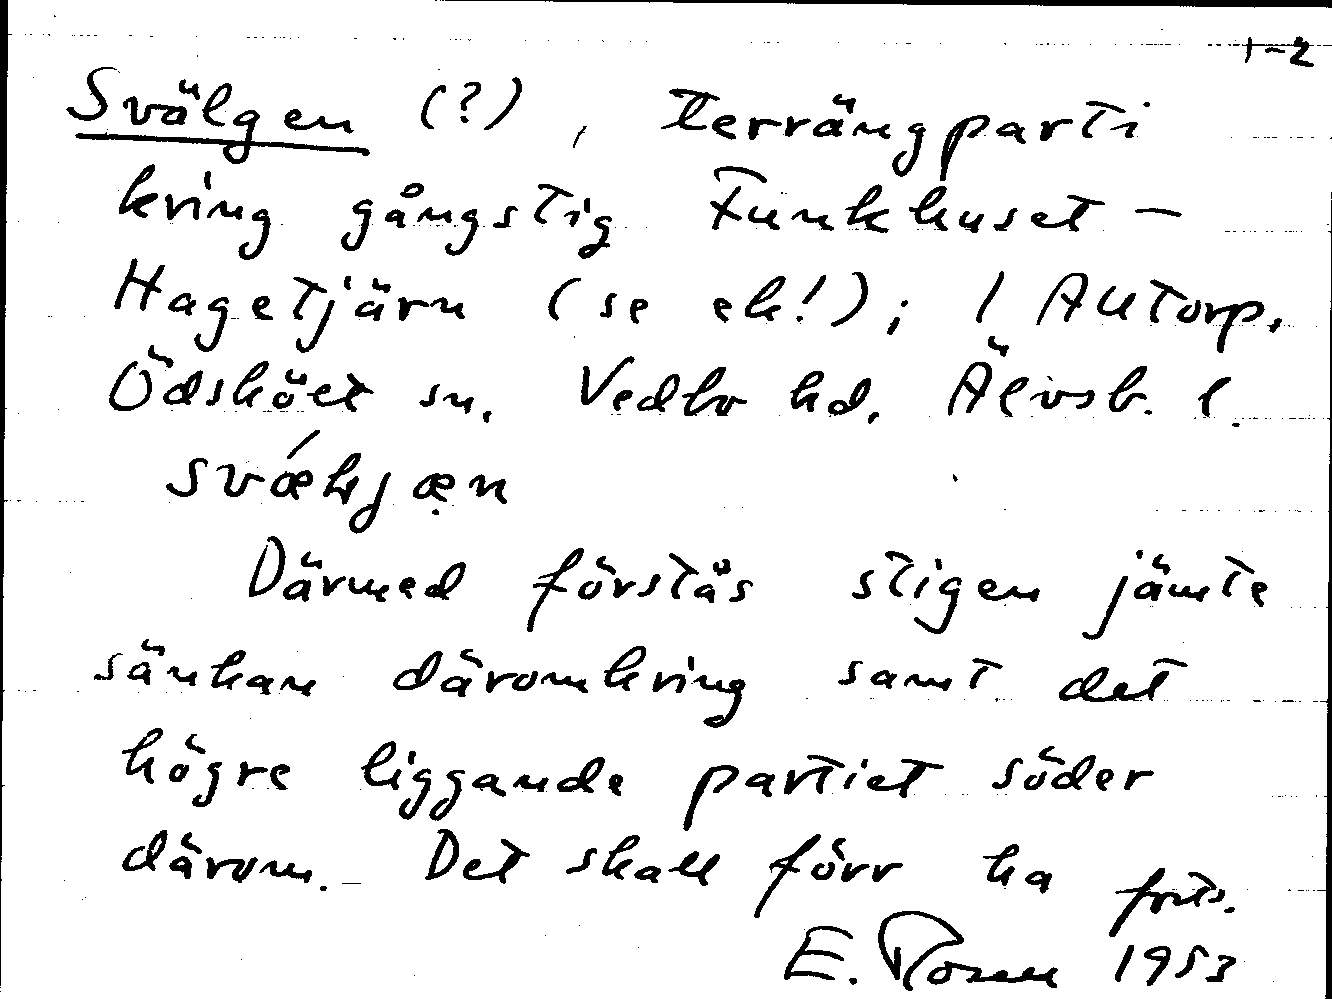 1-2
Svälgen (?), terrängparti
kring gångstig Funkhuset –
Hagetjärn (se ek!); 1 Alltorp.
Ödsköet sn. Vedbo hd. Älvsb. l.
Därmed förstås stigen jämte
sänkan däromkring samt det
högre liggande partiet söder
därom. – Det skall förr ha forts.
E. Rosell 1953